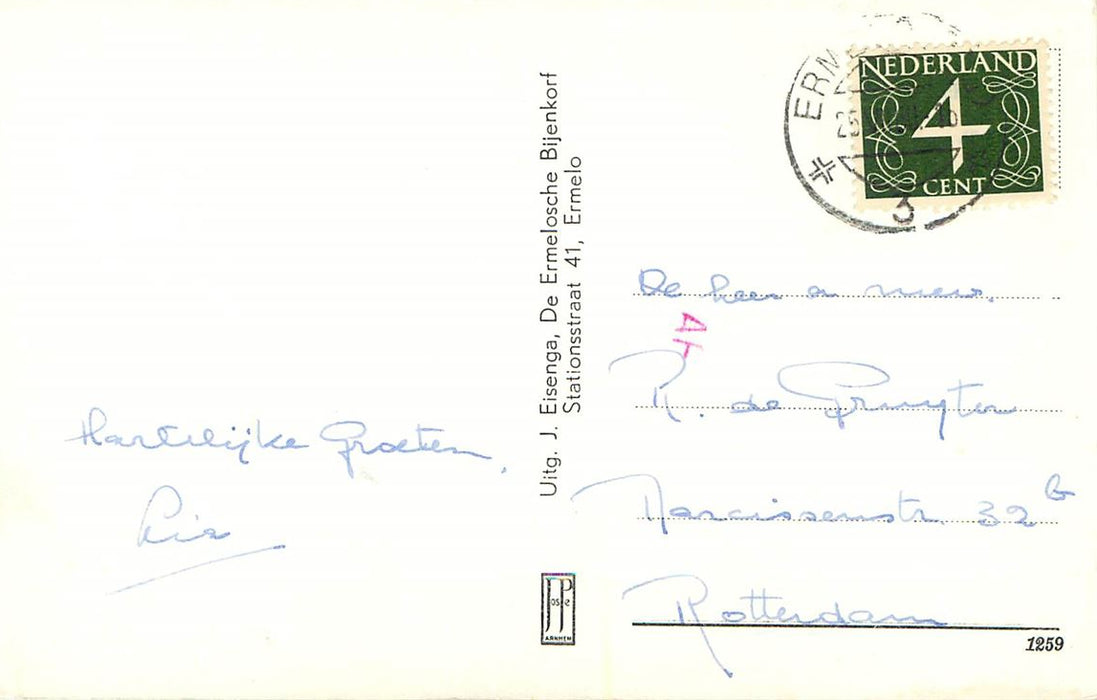 Hartelijke Groeten,
Uitg. J. Eisenga, De Ermelosche Bijenkorf
Stationsstraat 41, Ermelo
JosPe
ARNHEM
NEDERLAND
4
CENT
3
De heer a mevr.
R. de Gruyter
Narcissenstr. 32 b
Rotterdam
1259